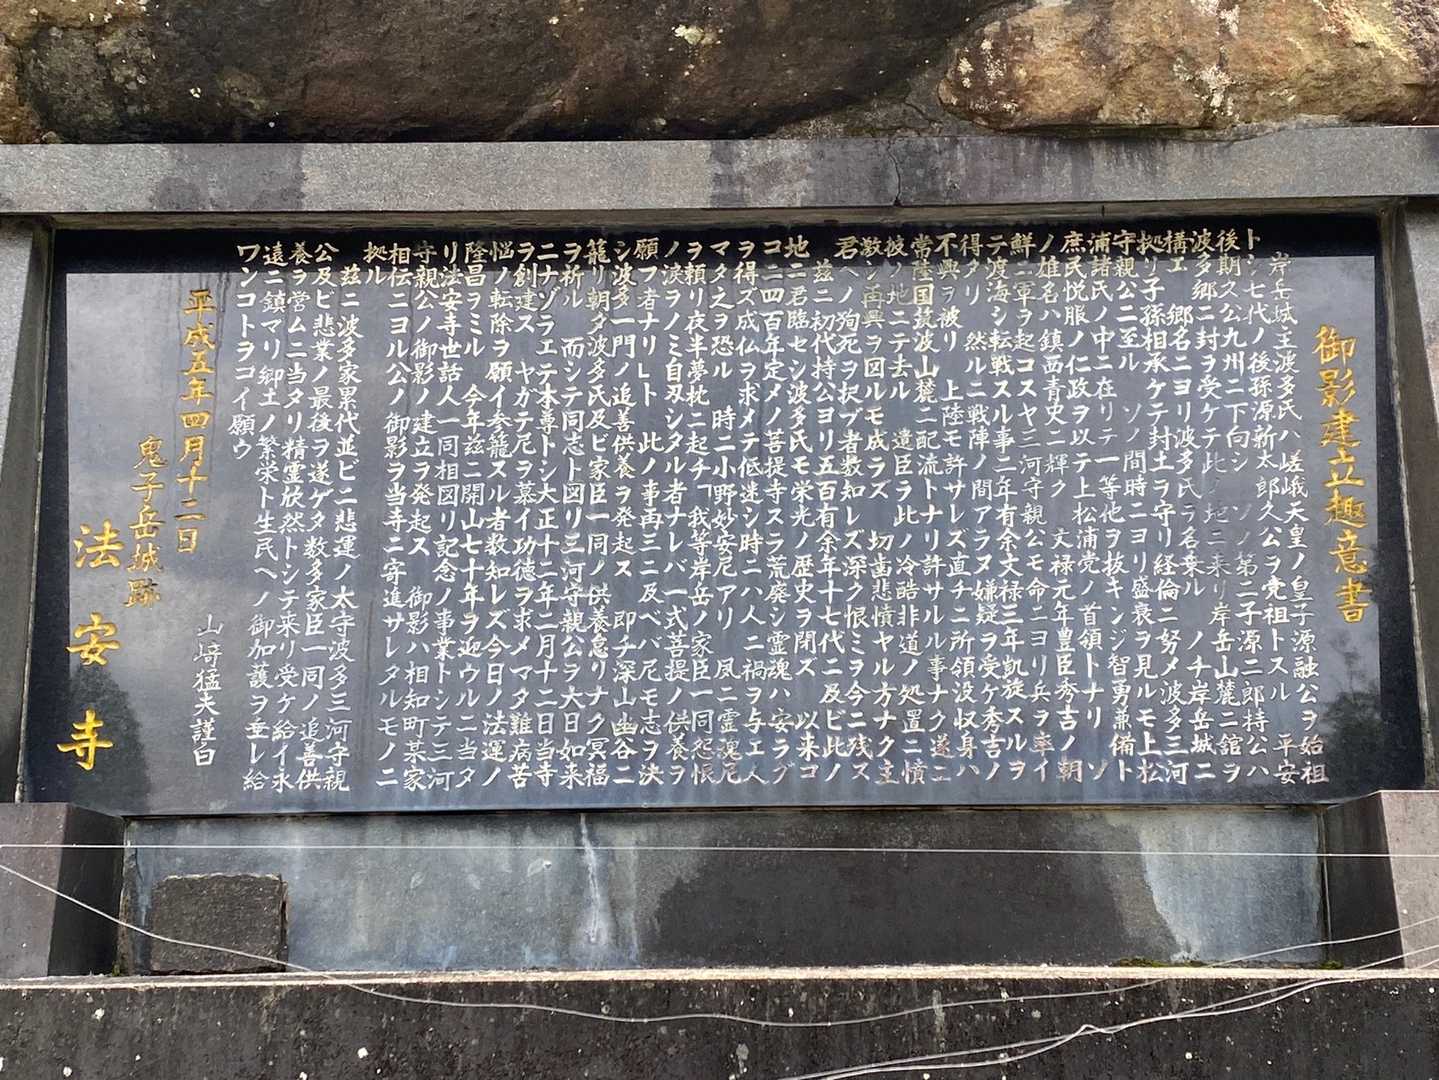 御影建立趣意書
岸岳城主波多氏ハ嵯峨天皇ノ皇子源融公ヲ始祖
トシ七代ノ後孫源新太郎久公ヲ党祖トスル 平安
後期久公九州ニ下向シ ソノ第二子源二郎持公ハ
波多郷ニ封ヲ受ケテ此ノ地ニ来リ岸岳山麓ニ舘ヲ
構エ 郷名ニヨリ波多氏ヲ名乗ル ノチ岸岳城ニ
拠リ子孫相承ケテ封土ヲ守リ経倫ニ努メ波多三河
守親公ニ至ル ソノ間時ニヨリ盛衰ヲ見ルモ上松
浦諸氏ノ中ニ在リテ一等他ヲ抜キンジ智勇兼備ト
庶民悦服ノ仁政ヲ以テ上松浦党ノ首領トナリ ソ
ノ雄名ハ鎮西青史ニ輝ク 文禄元年豊臣秀吉ノ朝
鮮ニ軍ヲ起コスヤ三河守親公モ命ニヨリ兵ヲ率イ
テ渡海シ転戦スル事二年有余文禄三年凱旋スルヲ
得タリ 然ルニ戦陣ノ間アラヌ嫌疑ヲ受ケ秀吉ノ
不興ヲ被リ 上陸モ許サレズ直チニ所領没収身ハ
常陸国筑波山麓ニ配流トナリ許サルル事ナク遂ニ
彼ノ地ニテ去ル 遺臣ラ此ノ冷酷非道ノ処置ニ憤
激シ再興ヲ図ルモ成ラズ 切歯悲憤ヤル方ナク主
君ヘノ殉死ヲ択ブ者数知レズ深ク恨ミヲ今ニ残ス
茲ニ初代持公ヨリ五百有余年十七代ニ及ビ此ノ
地ニ君臨セシ波多氏モ栄光ノ歴史ヲ閉ズ 以来コ
コニ四百年定メノ菩提寺スラ荒廃シ霊魂ハ安ラグ
ヲ得ズ成仏ヲ求メテ低迷シ時ニハ人ニ禍ヲ与エ人
マタ之ヲ恐ル 時ニ小野妙安尼アリ 夙ニ霊魂尼
ヲ頼リ夜半夢枕ニ起チ「我等岸岳ノ家臣一同怨恨
ノ涙ヲノミ自刃シタル者ナレバ一式菩提ノ供養ヲ
願フ者ナリ」ト 此ノ事再三ニ及ベバ尼モ志ヲ決
シ波多一門ノ追善供養ヲ発起ス 即チ深山幽谷ニ
籠リ朝夕波多氏及ビ家臣一同ノ供養怠リナク冥福
ヲ祈ル 而シテ同志ト図リ三河守親公ヲ大日如来
ニナゾラエテ本尊トシ大正十二年二月十二日当寺
ヲ創建ス ヤガテ尼ヲ慕イ功徳ヲ求メマタ難病苦
悩ノ転除ヲ願イ参籠スル者数知レズ今日ノ法運ノ
隆昌ヲミル 今年茲ニ開山七十年ヲ迎ウルニ当タ
リ法安寺世話人一同相図リ記念ノ事業トシテ三河
守親公ノ御影ノ建立ヲ発起ス 御影ハ相知町某家
相伝ニヨル公ノ御影ヲ当寺ニ寄進サレタルモノニ
拠ル
茲ニ 波多家累代並ビニ悲運ノ太守波多三河守親
公及ビ悲業ノ最後ヲ遂ゲタ数多家臣一同ノ追善供
養ヲ営ムニ当タリ精霊放然トシテ来リ受ケ給イ永
遠ニ鎮マリ郷土ノ繁栄ト生民ヘノ御加護ヲ垂レ給
ワンコトヲコイ願ウ
山﨑猛夫謹白
平成五年四月十二日
鬼子岳城跡
法安寺